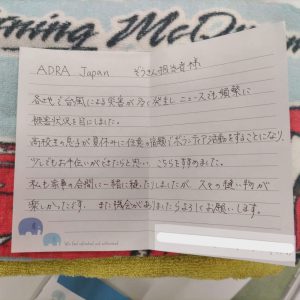 rning McDo
ADRA Japan ぞうきん担当者様
各地で台風による災害が多く発生し、ニュースでも頻繁に
被害状況を目にしました。
高校生の息子が夏休みに任意の宿題でボランティア活動をすることになり、
少しでもお手伝いができたらと思い、こちらを努めました。
私も家事の合間に一緒に縫たりしましたが、久々の縫い物が
楽しかったです。また機会がありましたらよろしくお願いします。